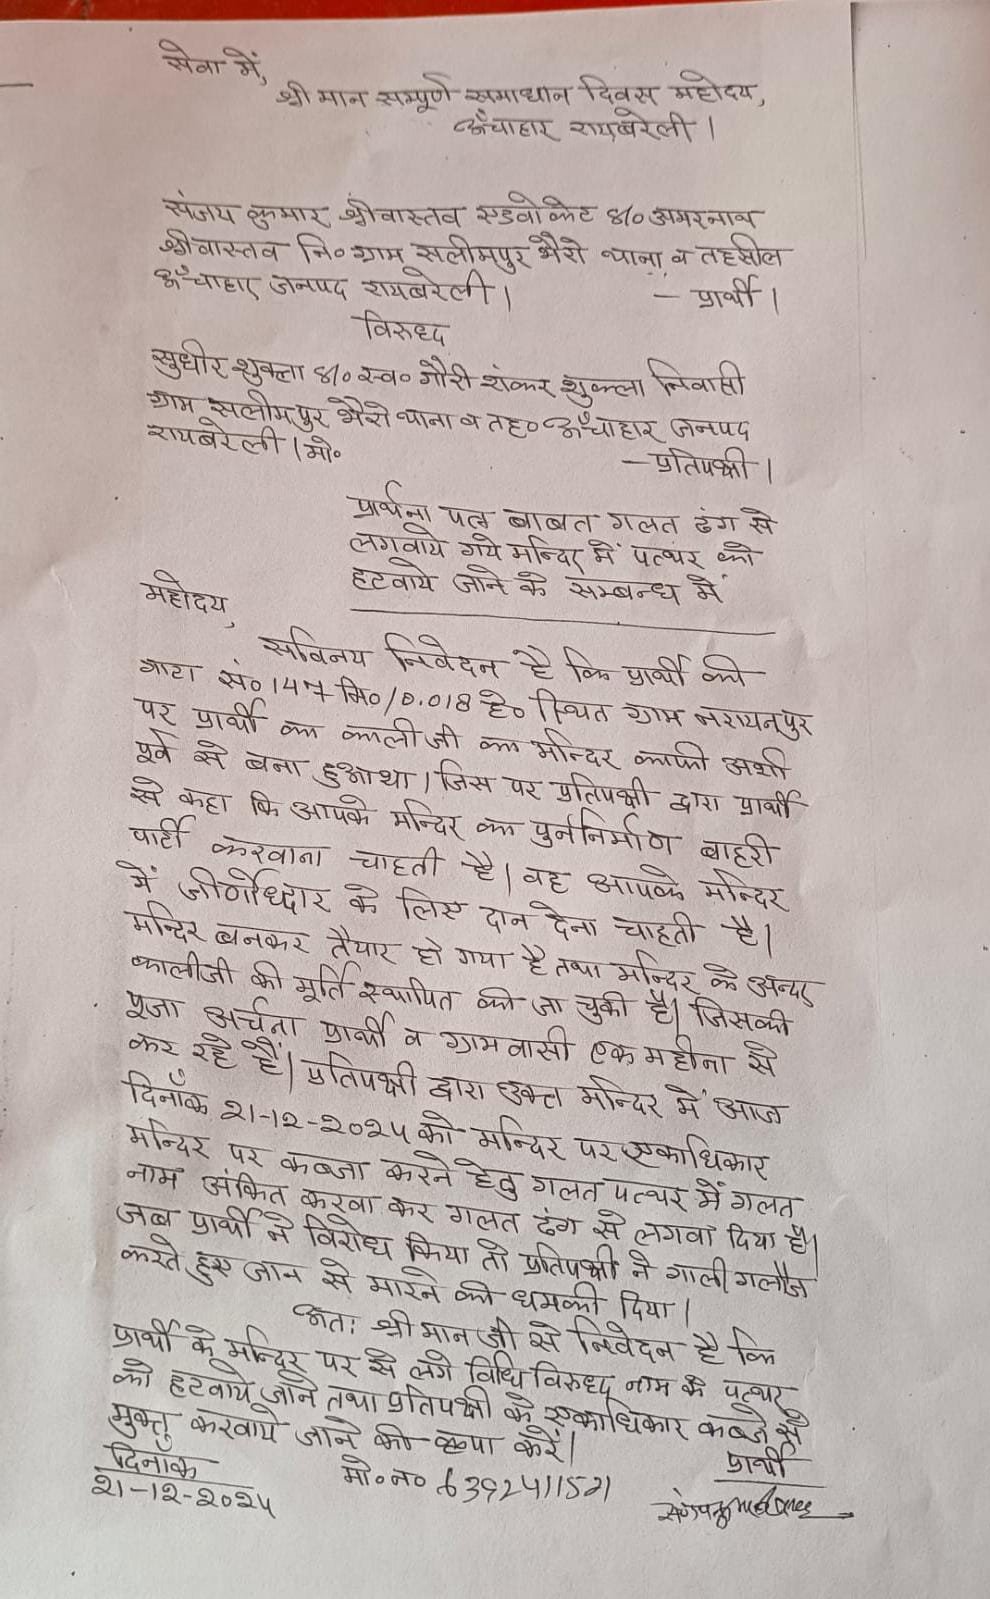 सेवा में,
श्री मान सम्पूर्ण समाधान दिवस महोदय,
ऊँचाहार रायबरेली।
संजय कुमार श्रीवास्तव एडवोकेट S/o अमरनाथ
श्रीवास्तव नि० ग्राम सलीमपुर भैरो थाना व तहसील
ऊँचाहार जनपद रायबरेली। — प्रार्थी।
विरुध्द
सुधीर शुक्ला S/o स्व० गौरी शंकर शुक्ला निवासी
ग्राम सलीमपुर भैरो थाना व तह० ऊँचाहार जनपद
रायबरेली। मो० — प्रतिपक्षी।
प्रार्थना पत्र बाबत गलत ढंग से
लगवाये गये मन्दिर में पत्थर को
हटवाये जाने के सम्बन्ध में
महोदय,
सविनय निवेदन है कि प्रार्थी की
गाटा सं० 147 मि०/0.018 हे० स्थित ग्राम नरायनपुर
पर प्रार्थी का कालीजी का मन्दिर काफी अर्शा
पूर्व से बना हुआ था। जिस पर प्रतिपक्षी द्वारा प्रार्थी
से कहा कि आपके मन्दिर का पुर्ननिर्माण बाहरी
पार्टी करवाना चाहती है। वह आपके मन्दिर
में जीर्णोध्दार के लिए दान देना चाहती है।
मन्दिर बनकर तैयार हो गया है तथा मन्दिर के अन्दर
कालीजी की मूर्ति स्थापित की जा चुकी है। जिसकी
पूजा अर्चना प्रार्थी व ग्रामवासी एक महीना से
कर रहे हैं। प्रतिपक्षी द्वारा उक्त मन्दिर में आज
दिनाँक 21-12-2024 को मन्दिर पर एकाधिकार
मन्दिर पर कब्जा करने हेतु गलत पत्थर में गलत
नाम अंकित करवा कर गलत ढंग से लगवा दिया है।
जब प्रार्थी ने विरोध किया तो प्रतिपक्षी ने गाली गलौज
करते हुए जान से मारने की धमकी दिया।
अतः श्री मान जी से निवेदन है कि
प्रार्थी के मन्दिर पर से लगे विधि विरुध्द नाम के पत्थर
को हटवाये जाने तथा प्रतिपक्षी के एकाधिकार कब्जे से
मुक्त करवाये जाने की कृपा करें।
दिनाँक मो० न० 6392411521 प्रार्थी
21-12-2024